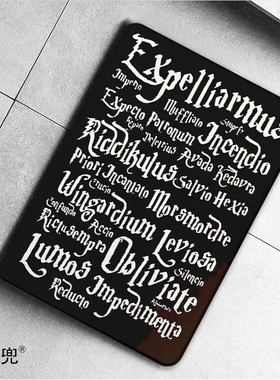 Expelliarmus
Impero Muffliato Stupefy
Expecto Patronum Incendio
Reparo Deletrius Avada Kedavra
Riddikulus Salvio Hexia
Priori Incantato
Crucio Morsmordre
Wingardium Leviosa
Confundo Accio
Rictusempra Silencio
Lumos Obliviate
Reducto Impedimenta
兜®